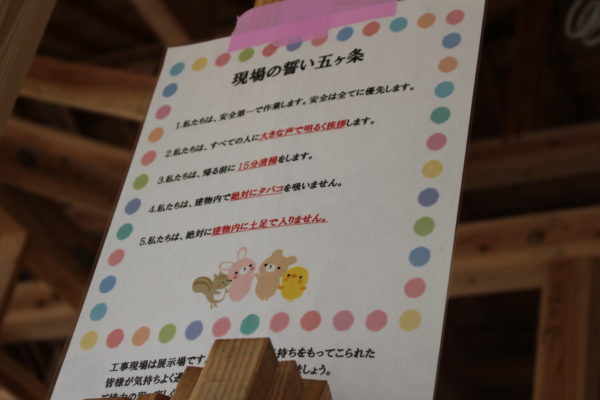 現場の誓い五ヶ条
1.私たちは、安全第一で作業します。安全は全てに優先します。
2.私たちは、すべての人に大きな声で明るく挨拶します。
3.私たちは、帰る前に15分清掃をします。
4.私たちは、建物内で絶対にタバコを吸いません。
5.私たちは、絶対に建物内に土足で入りません。
工事現場は展示場です 気持ちをもってこられた
皆様が気持ちよく過 ましょう。